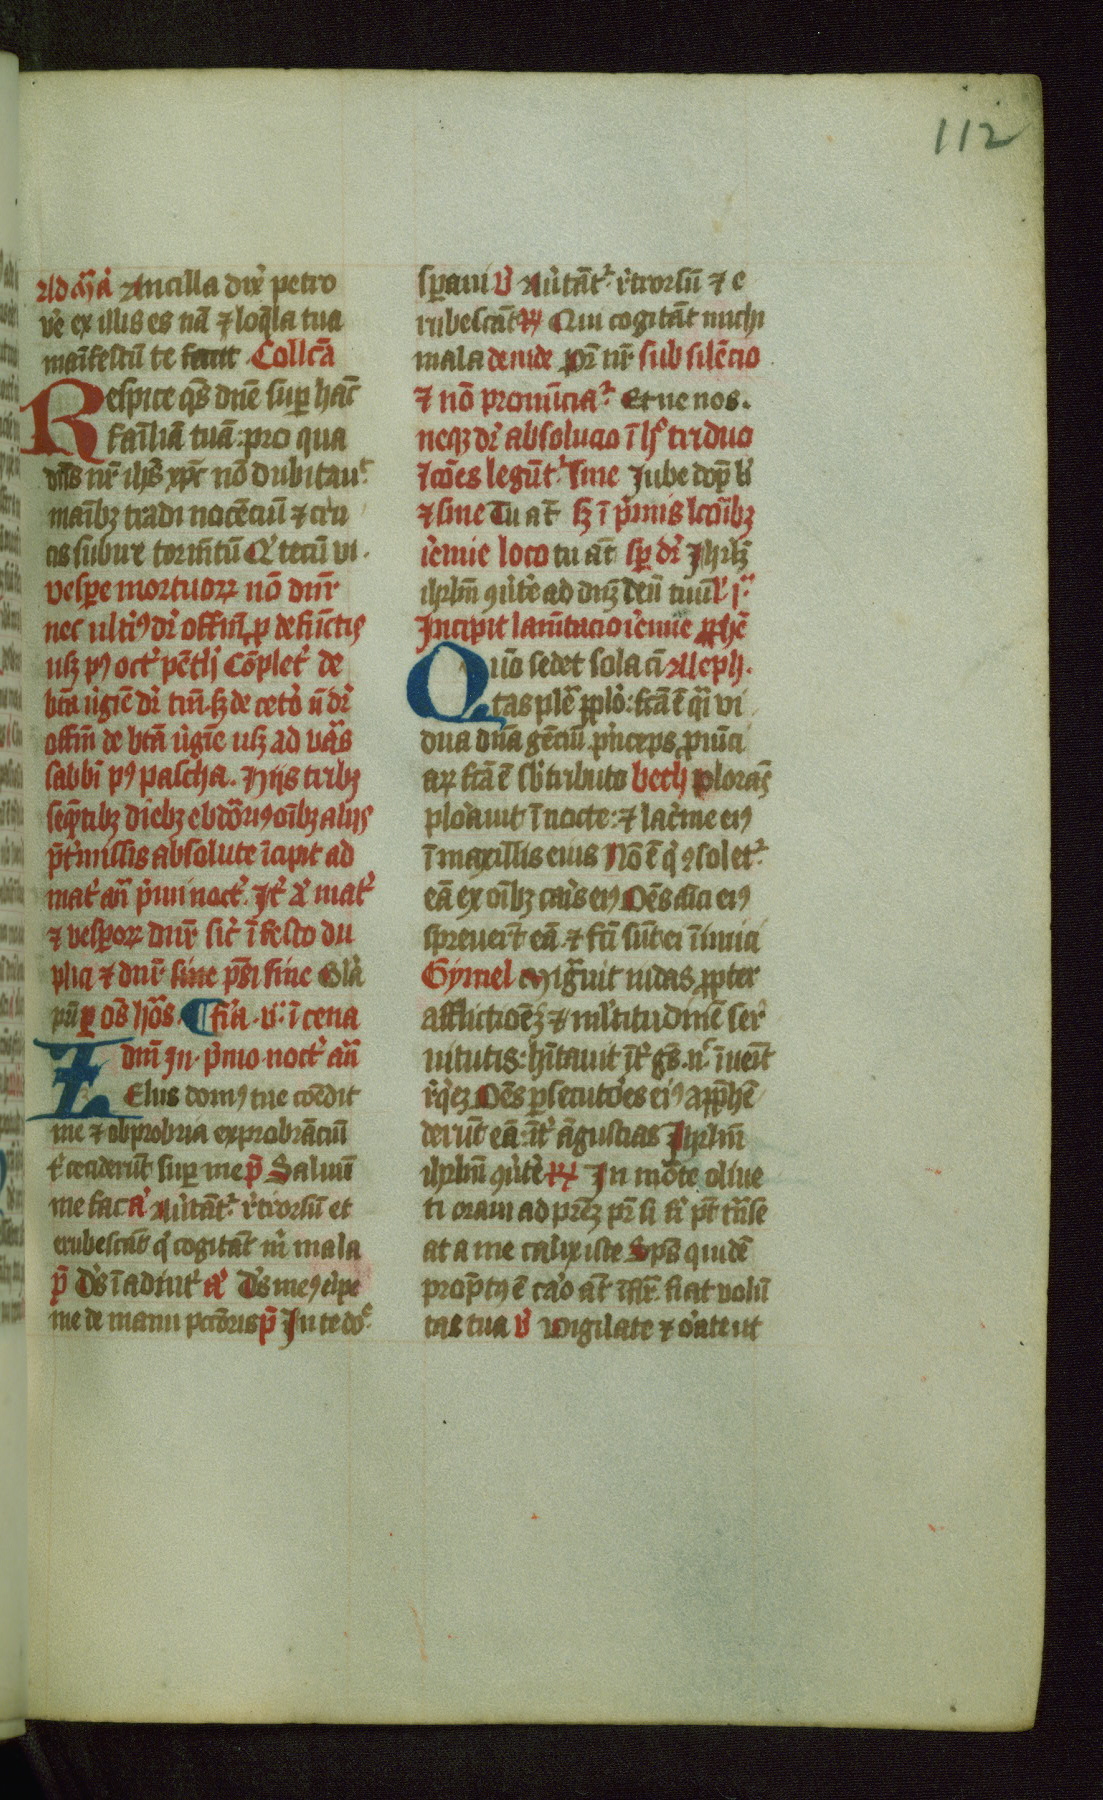 112
Ad mᷓ a̾ Ancilla dix̾ petro
ve̾ ex illis es nā ⁊ loq̄la tua
maīfestū te facit Collcā
Respice q̄s dn̄e sup̱ hāc
fa̅iliā tuā: pro qua
dn̄s nr̄ ih̄s xp̄c nō dubitauͭ
maībꝫ tradi nocēciū ⁊ cru
cis subire torm̄tū Q̾ tecū vi.
vesp̱e mortuoꝝ nō dnr̄
nec ulti̾ꝰ dr̄ offm̄ ꝓ defūctis
usꝫ pꝰ oct̾ pēth̾ Cōplet̾ de
btā v̾gīe dr̄ tm̄. sꝫ de ceto̾ n̄ dr̄
offm̄ de btā v̾gīe usꝫ ad
sabbi̅ pꝰ pascha. Hijs tribꝫ
seq̄tibꝫ diebꝫ ebdōꝰ oībꝫ alijs
p̄t̾missis absolute īcipit ad
mat̾ an̄ p̾mi noct̾. It̾ ad mat̾
⁊ vesp̱oꝝ dnr̄ sic̾ ī festo du
plici ⁊ dnr̄ sine p̄s̄ı sine Glā
pr̄i ꝑ oēs ho̅s. ¶ fr̾ia .v. ī cena
dn̄i In. p̾mo. noct̾ an̄
Zelus domꝰ tue comēdit
me ⁊ obprobria exprobrāciū
t̾ ceciderūt sup̱ me p̄s Saluū
me fac a̾ Au̾tāt̾ r̾trorsū et
erubescāt q̾ cogitāt m̾ mala
p̄s Ds̄ ī adiut̾ a̾ Ds̄ meꝰ eripe
me de manu pctōris p̄s In te do̾
sp̱aui v̾ Au̾tāt̾ r̾trorsū ⁊ e
rubescāt ℟ Qui cogitāt michi
mala deinde pr̄ nr̄ sub silēcio
⁊ nō pronūcia̾ Et ne nos.
neqꝫ dr̄ absolucio ī h̾ triduo
lcōes legūt̾ sine Iube dōp b̾
⁊ sine Tu at̄ sꝫ ī p̾mis lcōibꝫ
ie̾mie loco tu at̄ sp̱ dr̄ Ihrlm̄
ihrlm̄ ꝯu̾te̾ ad dn̄ꝫ deū tuū l̾ j̾
Incipit lam̄tacio ie̾mie ꝓphē
Quō sedet sola ci̅ Aleph.
tas plēa pplo̾: fcā ē q̄i vi
dua dn̄a gēciū p̾nceps ꝓuīci
aꝝ fcā ē sb̾ tributo beth Plorās
plo̾auit ī nocte: ⁊ lac̾me eiꝰ
ī maxillis eius Nō ē q̾ ꝯsolet̾
eā ex oībꝫ car̾is eiꝰ Oēs aīci eiꝰ
spreuer̄t eā ⁊ fcī sūt ei īimici
Gymel Migrauit iudas ꝓpter
afflictioēꝫ ⁊ ml̾titudinē ser̾
uitutis: hītauit īt̾ gēs n̾ īuēit
r̾q̾eꝫ Oēs p̱secuto̾es eiꝰ app̄hē
derūt eā: īt̾ āgustias Ihrlm̄
ihrlm̄ ꝯu̾te̾ ℟ In mōte oliue
ti oraui ad pr̄eꝫ pr̄ si fi̾ p̄t trāse
at a me calix iste Sps̄ quidē
prōptꝰ ē ca̾o at̄ īfir̄. fiat volū
tas tua v̾ Uigilate ⁊ o̾ate ut